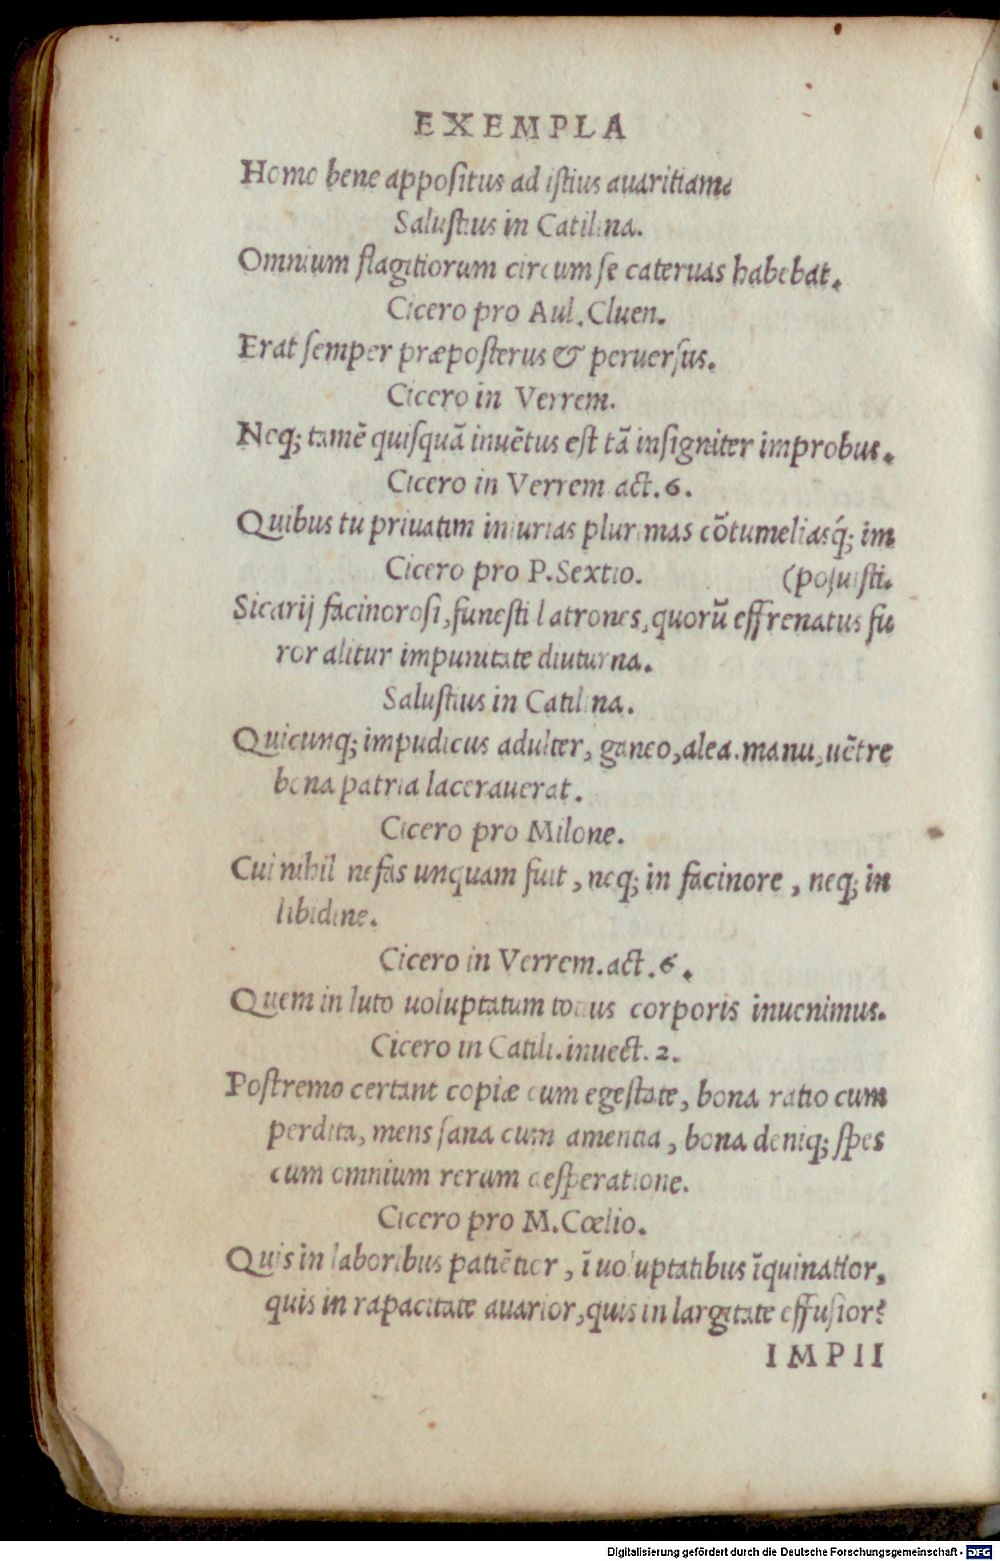 EXEMPLA
Homo bene appositus ad iſtius auaritiam.
Saluſtius in Catilina.
Omnium flagitiorum circum ſe cateruas habebat.
Cicero pro Aul. Cluen.
Erat ſemper præpoſterus & peruerſus.
Cicero in Verrem.
Neq; tamē quiſquā inuētus eſt tā inſigniter improbus.
Cicero in Verrem act. 6.
Quibus tu priuatim iniurias plurimas cōtumeliasq́; im
Cicero pro P. Sextio. (poſuiſti.
Sicarij facinoroſi, funeſti latrones, quorū effrenatus fu
ror alitur impunitate diuturna.
Saluſtius in Catilina.
Quicunq; impudicus adulter, ganeo, alea. manu, uētre
bona patria lacerauerat.
Cicero pro Milone.
Cui nihil nefas unquam fuit, neq; in facinore, neq; in
libidine.
Cicero in Verrem. act. 6.
Quem in luto uoluptatum totius corporis inuenimus.
Cicero in Catili. inuect. 2.
Poſtremo certant copiæ cum egeſtate, bona ratio cum
perdita, mens ſana cum amentia, bona deniq; ſpes
cum omnium rerum deſperatione.
Cicero pro M. Cœlio.
Quis in laboribus patiētior, ī uoluptatibus īquinatior,
quis in rapacitate auarior, quis in largitate effuſior?
IMPII
Digitalisierung gefördert durch die Deutsche Forschungsgemeinschaft - DFG